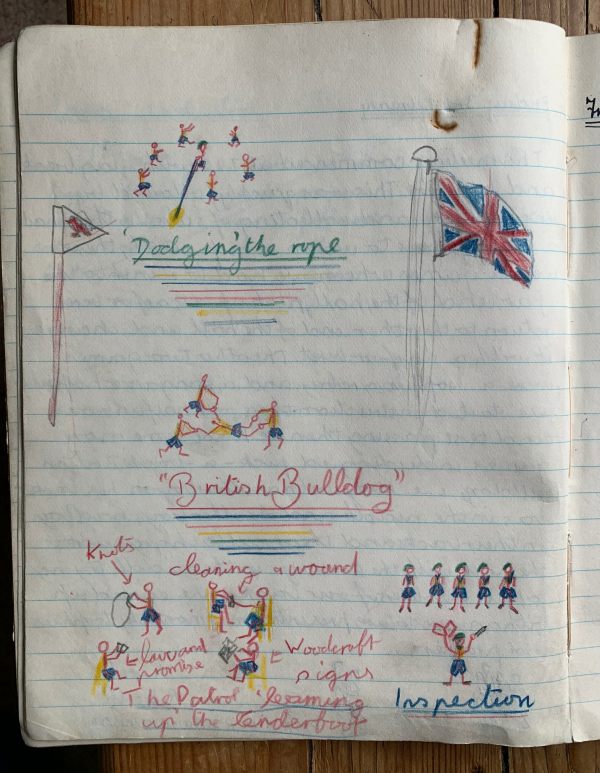 'Dodging' the rope
"British Bulldog"
Knots
cleaning a wound
law and
promise
Woodcraft
signs
The Patrol 'learning
up' the tenderfoot
Inspection